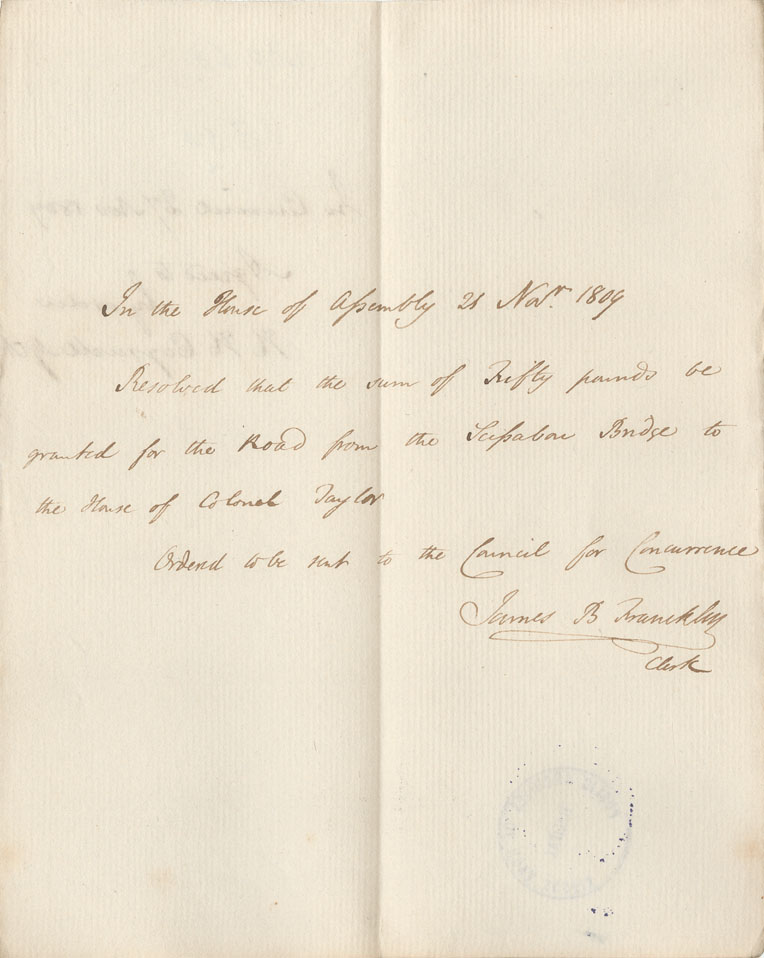 In the House of Assembly 21 Novr. 1809
Resolved that the sum of Fifty pounds be
granted for the Road from the Scissabou Bridge to
the House of Colonel Taylor
Ordered to be sent to the Council for Concurrence
James B Franckling
Clerk